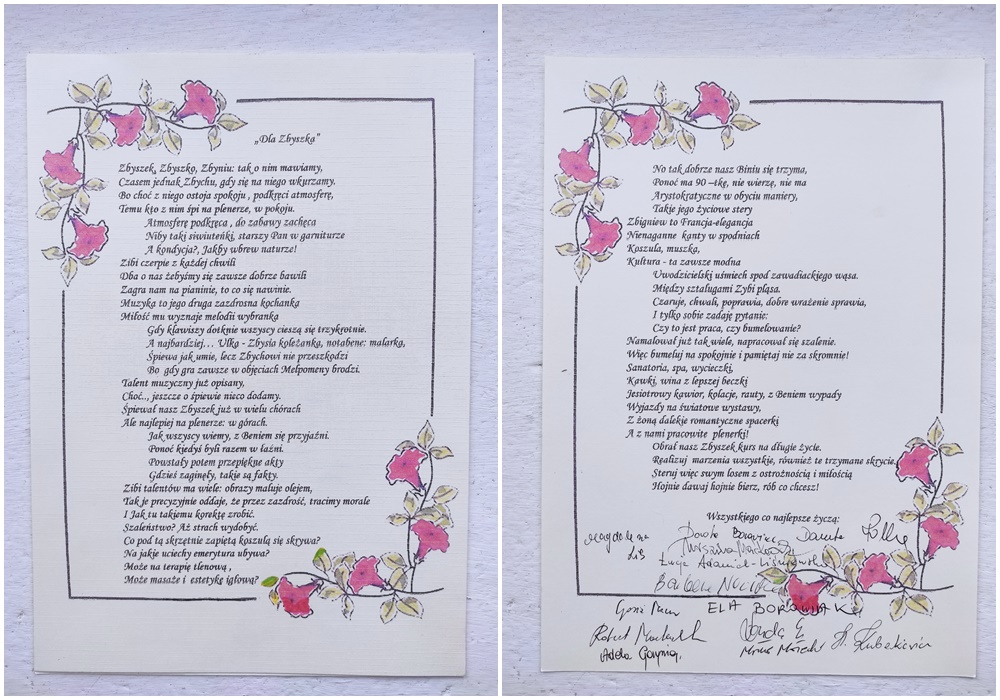 „Dla Zbyszka”
Zbyszek, Zbyszko, Zbyniu: tak o nim mawiamy,
Czasem jednak Zbychu, gdy się na niego wkurzamy.
Bo choć z niego ostoja spokoju , podkręci atmosferę,
Temu kto z nim śpi na plenerze, w pokoju.
Atmosferę podkręca , do zabawy zachęca
Niby taki siwiuteńki, starszy Pan w garniturze
A kondycja?, Jakby wbrew naturze!
Zibi czerpie z każdej chwili
Dba o nas żebyśmy się zawsze dobrze bawili
Zagra nam na pianinie, to co się nawinie.
Muzyka to jego druga zazdrosna kochanka
Miłość mu wyznaje melodii wybranka
Gdy klawiszy dotknie wszyscy cieszą się trzykrotnie.
A najbardziej... Ulka - Zbysia koleżanka, notabene: malarka,
Śpiewa jak umie, lecz Zbychowi nie przeszkodzi
Bo gdy gra zawsze w objęciach Melpomeny brodzi.
Talent muzyczny już opisany,
Choć.., jeszcze o śpiewie nieco dodamy.
Śpiewał nasz Zbyszek już w wielu chórach
Ale najlepiej na plenerze: w górach.
Jak wszyscy wiemy, z Beniem się przyjaźni.
Ponoć kiedyś byli razem w łaźni.
Powstały potem przepiękne akty
Gdzieś zaginęły, takie są fakty.
Zibi talentów ma wiele: obrazy maluje olejem,
Tak je precyzyjnie oddaje, że przez zazdrość, tracimy morale
I Jak tu takiemu korektę zrobić.
Szaleństwo? Aż strach wydobyć.
Co pod tą skrzętnie zapiętą koszulą się skrywa?
Na jakie uciechy emerytura ubywa?
Może na terapię tlenową ,
Może masaże i estetykę igłową?
No tak dobrze nasz Biniu się trzyma,
Ponoć ma 90 –tkę, nie wierzę, nie ma
Arystokratyczne w obyciu maniery,
Takie jego życiowe stery
Zbigniew to Francja-elegancja
Nienaganne kanty w spodniach
Koszula, muszka,
Kultura - ta zawsze modna
Uwodzicielski uśmiech spod zawadiackiego wąsa.
Między sztalugami Zybi pląsa.
Czaruje, chwali, poprawia, dobre wrażenie sprawia,
I tylko sobie zadaję pytanie:
Czy to jest praca, czy bumelowanie?
Namalował już tak wiele, napracował się szalenie.
Więc bumeluj na spokojnie i pamiętaj nie za skromnie!
Sanatoria, spa, wycieczki,
Kawki, wina z lepszej beczki
Jesiotrowy kawior, kolacje, rauty, z Beniem wypady
Wyjazdy na światowe wystawy,
Z żoną dalekie romantyczne spacerki
A z nami pracowite plenerki!
Obrał nasz Zbyszek kurs na długie życie.
Realizuj marzenia wszystkie, również te trzymane skrycie.
Steruj więc swym losem z ostrożnością i miłością
Hojnie dawaj hojnie bierz, rób co chcesz!
Wszystkiego co najlepsze życzą:
Magdalena
Lis
Dorota
Danuta
Łucja Adamiak-
Barbara
ELA BOROWIAK
Robert
Adela